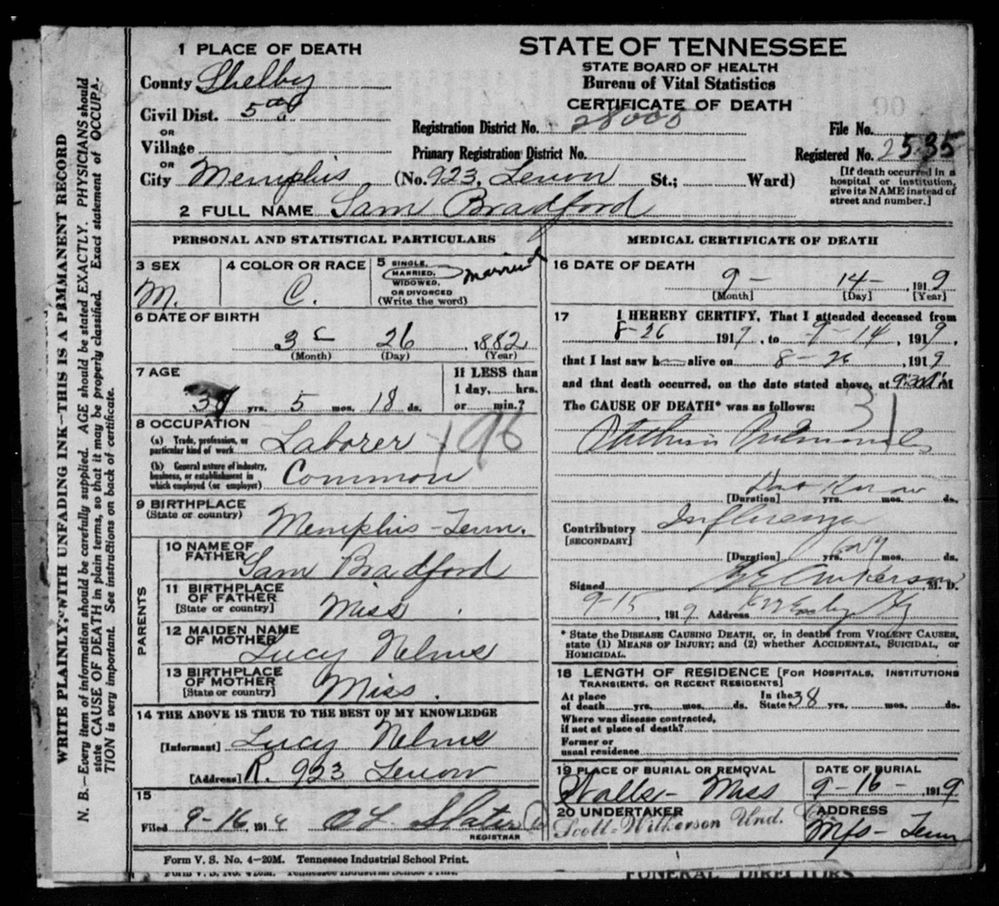 1 PLACE OF DEATH
County Shelby
Civil Dist. 5
OR
Village
OR
City Memphis (No. 923, St.; Ward)
2 FULL NAME Sam Bradford
STATE OF TENNESSEE
STATE BOARD OF HEALTH
Bureau of Vital Statistics
CERTIFICATE OF DEATH
Registration District No. 28000
Primary Registration District No.
File No.
Registered No. 2535
[If death occurred in a
hospital or institution,
give its NAME instead of
street and number.]
WRITE PLAINLY, WITH UNFADING INK—THIS IS A PERMANENT RECORD
N. B.—Every item of information should be carefully supplied. AGE should be stated EXACTLY. PHYSICIANS should
state CAUSE OF DEATH in plain terms, so that it may be properly classified. Exact statement of OCCUPA-
TION is very important. See instructions on back of certificate.
PERSONAL AND STATISTICAL PARTICULARS
3 SEX
M.
4 COLOR OR RACE
C.
5 SINGLE,
MARRIED,
WIDOWED,
OR DIVORCED
(Write the word)
Married
6 DATE OF BIRTH
3 26 1882
(Month) (Day) (Year)
7 AGE
yrs. 5 mos. 18 ds.
If LESS than
1 day, hrs.
or min.?
8 OCCUPATION
(a) Trade, profession, or
particular kind of work Laborer
(b) General nature of industry,
business, or establishment in
which employed (or employer) Common
196
9 BIRTHPLACE
(State or country) Memphis - Tenn.
PARENTS
10 NAME OF
FATHER Sam Bradford
11 BIRTHPLACE
OF FATHER
[State or country] Miss.
12 MAIDEN NAME
OF MOTHER Lucy Nelms
13 BIRTHPLACE
OF MOTHER
[State or country] Miss.
14 THE ABOVE IS TRUE TO THE BEST OF MY KNOWLEDGE
[Informant] Lucy Nelms
[Address] R. 923
15
Filed 9-16, 191
REGISTRAR
MEDICAL CERTIFICATE OF DEATH
16 DATE OF DEATH
9- 14- 1919
[Month] [Day] [Year]
17 I HEREBY CERTIFY, That I attended deceased from
8-26 1919, to 9-14, 1919,
that I last saw h alive on 8-26 1919
and that death occurred, on the date stated above, at M
The CAUSE OF DEATH* was as follows:
31
[Duration] yrs. mos. ds.
Contributory Influenza
[SECONDARY]
[Duration] yrs. mos. ds.
Signed M. D.
9-15, 1919 Address
* State the DISEASE CAUSING DEATH, or, in deaths from VIOLENT CAUSES,
state (1) MEANS OF INJURY; and (2) whether ACCIDENTAL, SUICIDAL, or
HOMICIDAL.
18 LENGTH OF RESIDENCE [FOR HOSPITALS, INSTITUTIONS
TRANSIENTS, OR RECENT RESIDENTS]
At place
of death yrs. mos. ds.
In the
State 38 yrs. mos. ds.
Where was disease contracted,
if not at place of death?
Former or
usual residence
19 PLACE OF BURIAL OR REMOVAL
Walls - Miss
DATE OF BURIAL
9-16- 1919
20 UNDERTAKER
Scott-Wilkerson Und. Co.
ADDRESS
Mfs - Tenn
Form V. S. No. 4—20M. Tennessee Industrial School Print.
FUNERAL DIRECTORS